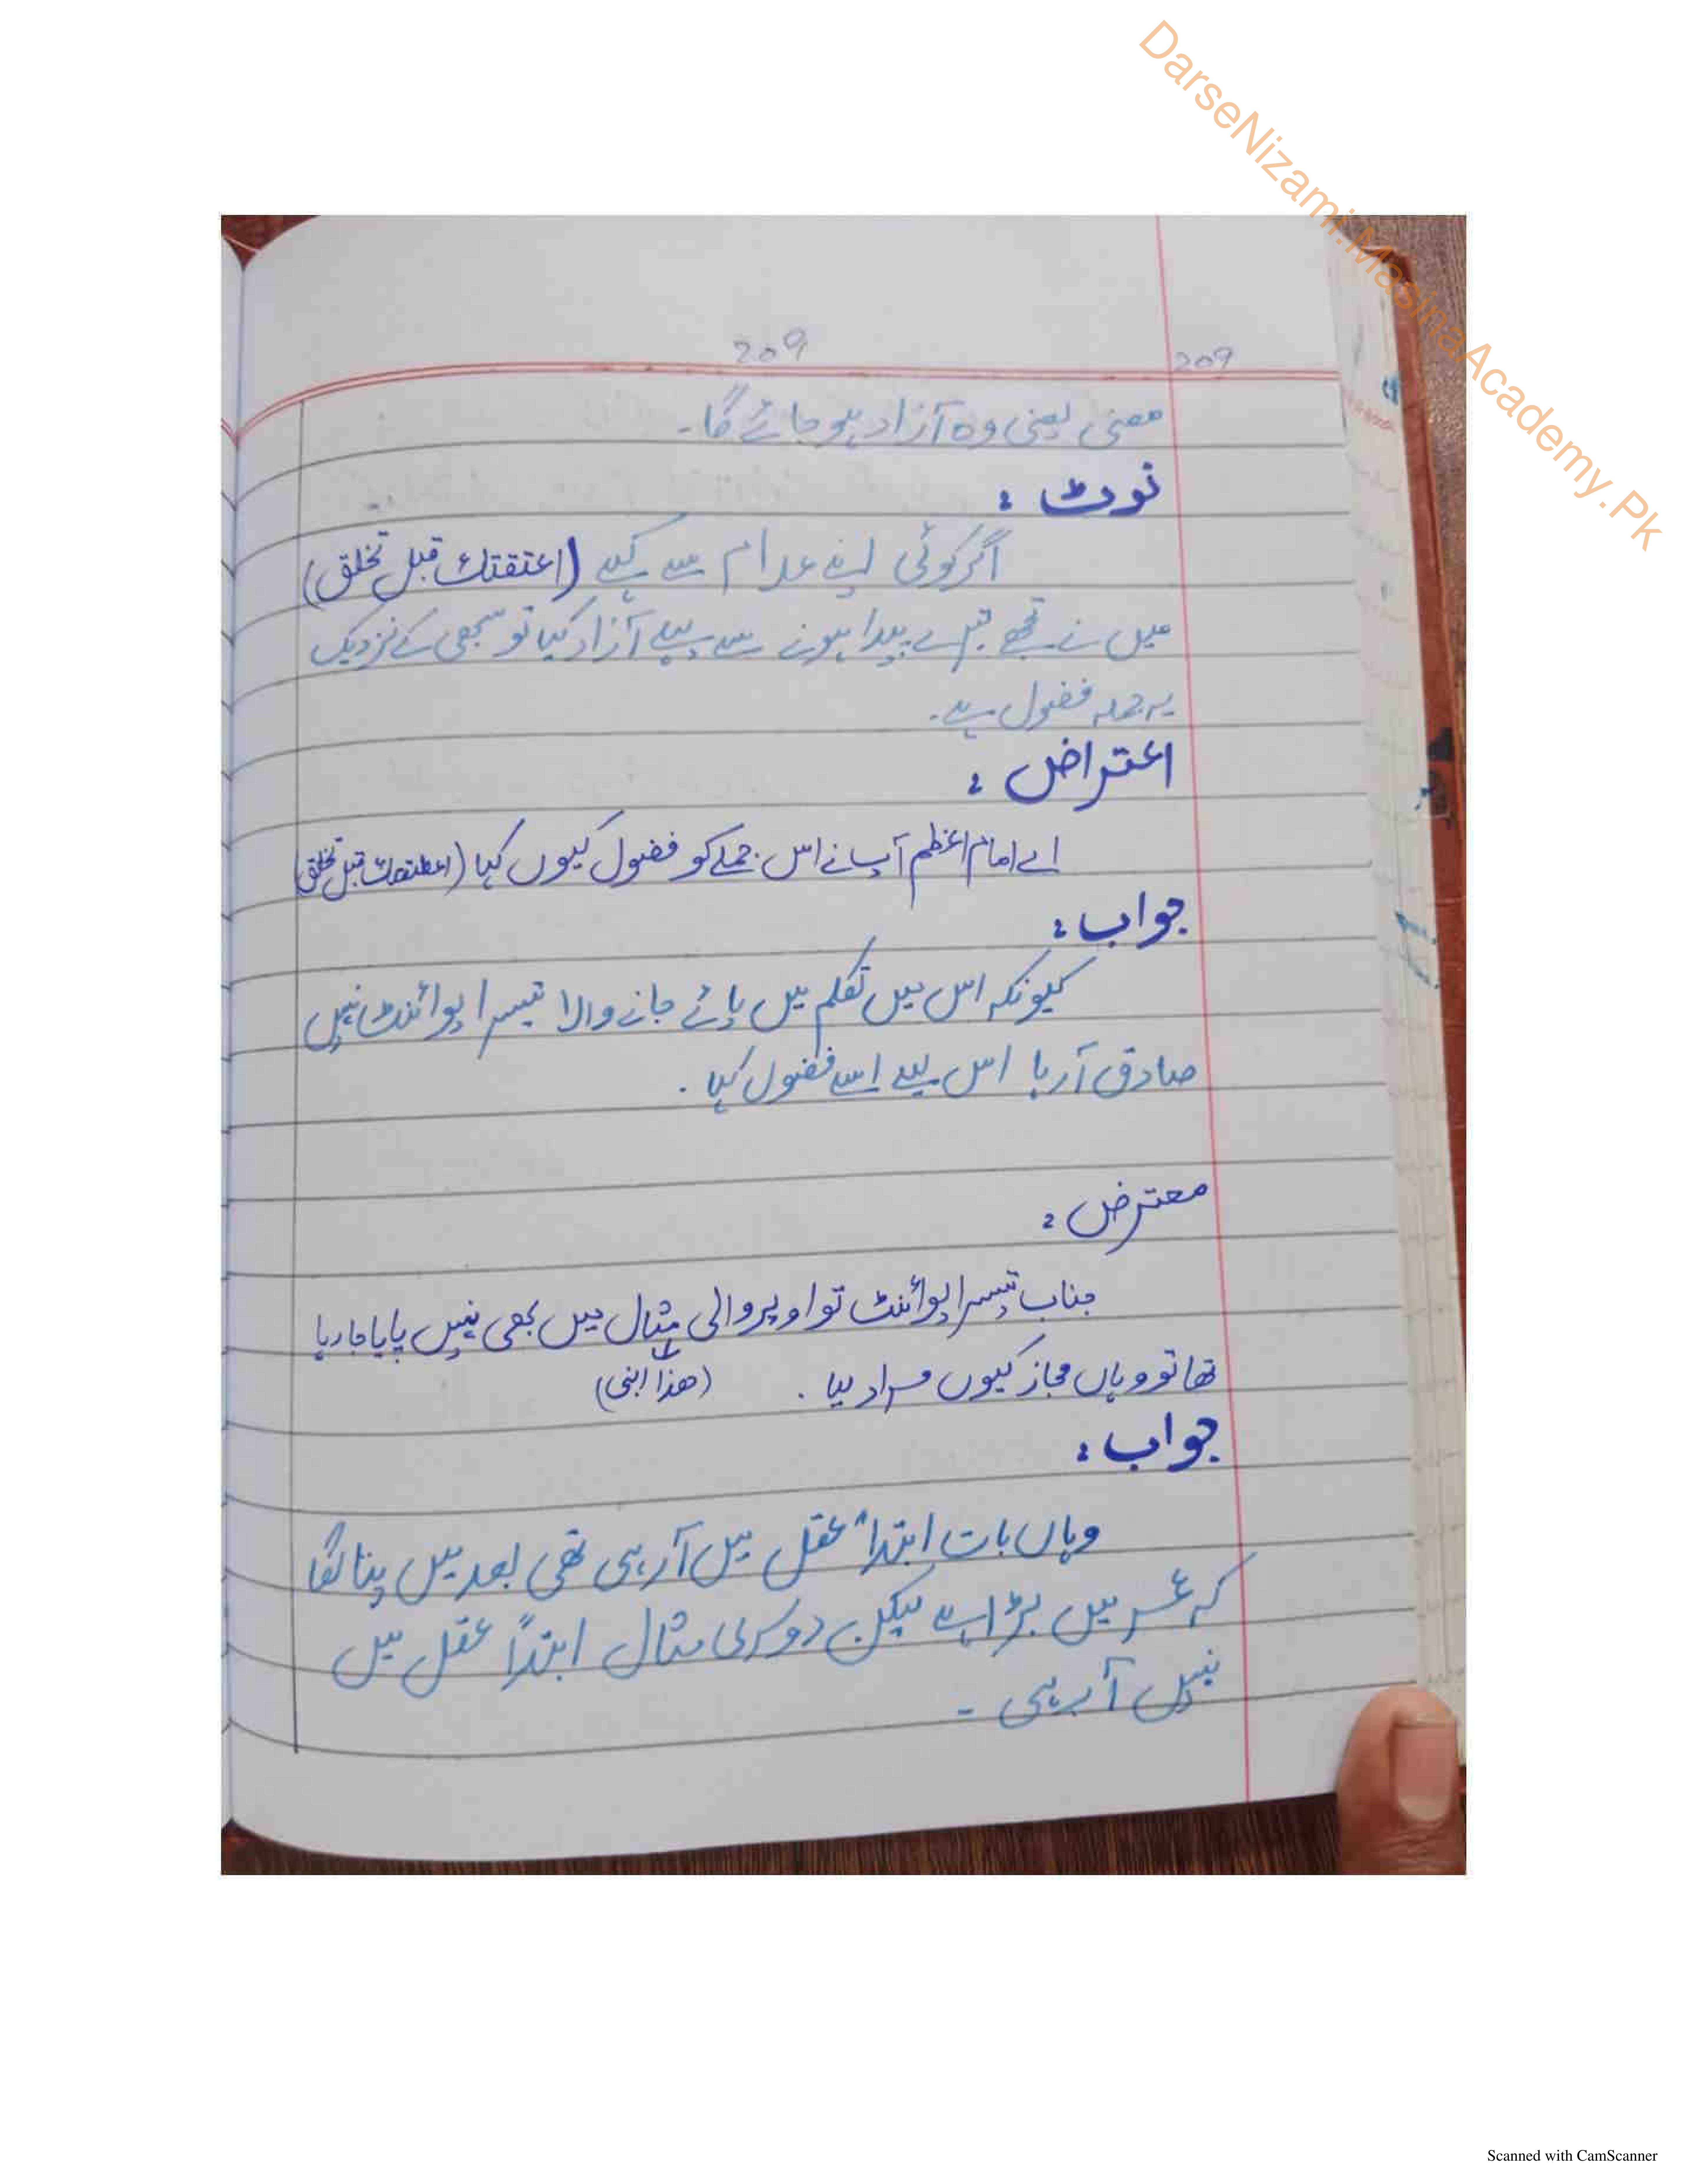 DarseNizami.MasinaAcademy.Pk
209
209
معنی یعنی وہ آزاد ہو جائے گا۔
نوٹ :
اگر کوئی اپنے غلام سے کہے (اعتقتك قبل تخلق)
میں نے تجھے تیرے پیدا ہونے سے پہلے آزاد کیا تو سبھی کے نزدیک
یہ جملہ فضول ہے۔
اعتراض :
اے امام اعظم آپ نے اس جملے کو فضول کیوں کہا (اعتقتك قبل تخلق)
جواب :
کیونکہ اس میں تکلم میں پائے جانے والا تیسرا پوائنٹ نہیں
صادق آ رہا اس لیے اسے فضول کہا ۔
معترض :
جناب تیسرا پوائنٹ تو اوپر والی مثال میں بھی نہیں پایا جا رہا
تھا تو وہاں مجاز کیوں مراد لیا ۔ (هذا ابنی)
جواب :
وہاں بات ابتداً عقل میں آ رہی تھی بعد میں پتا لگا
کہ عمر میں بڑا ہے لیکن دوسری مثال ابتداً عقل میں
نہیں آ رہی ۔
Scanned with CamScanner